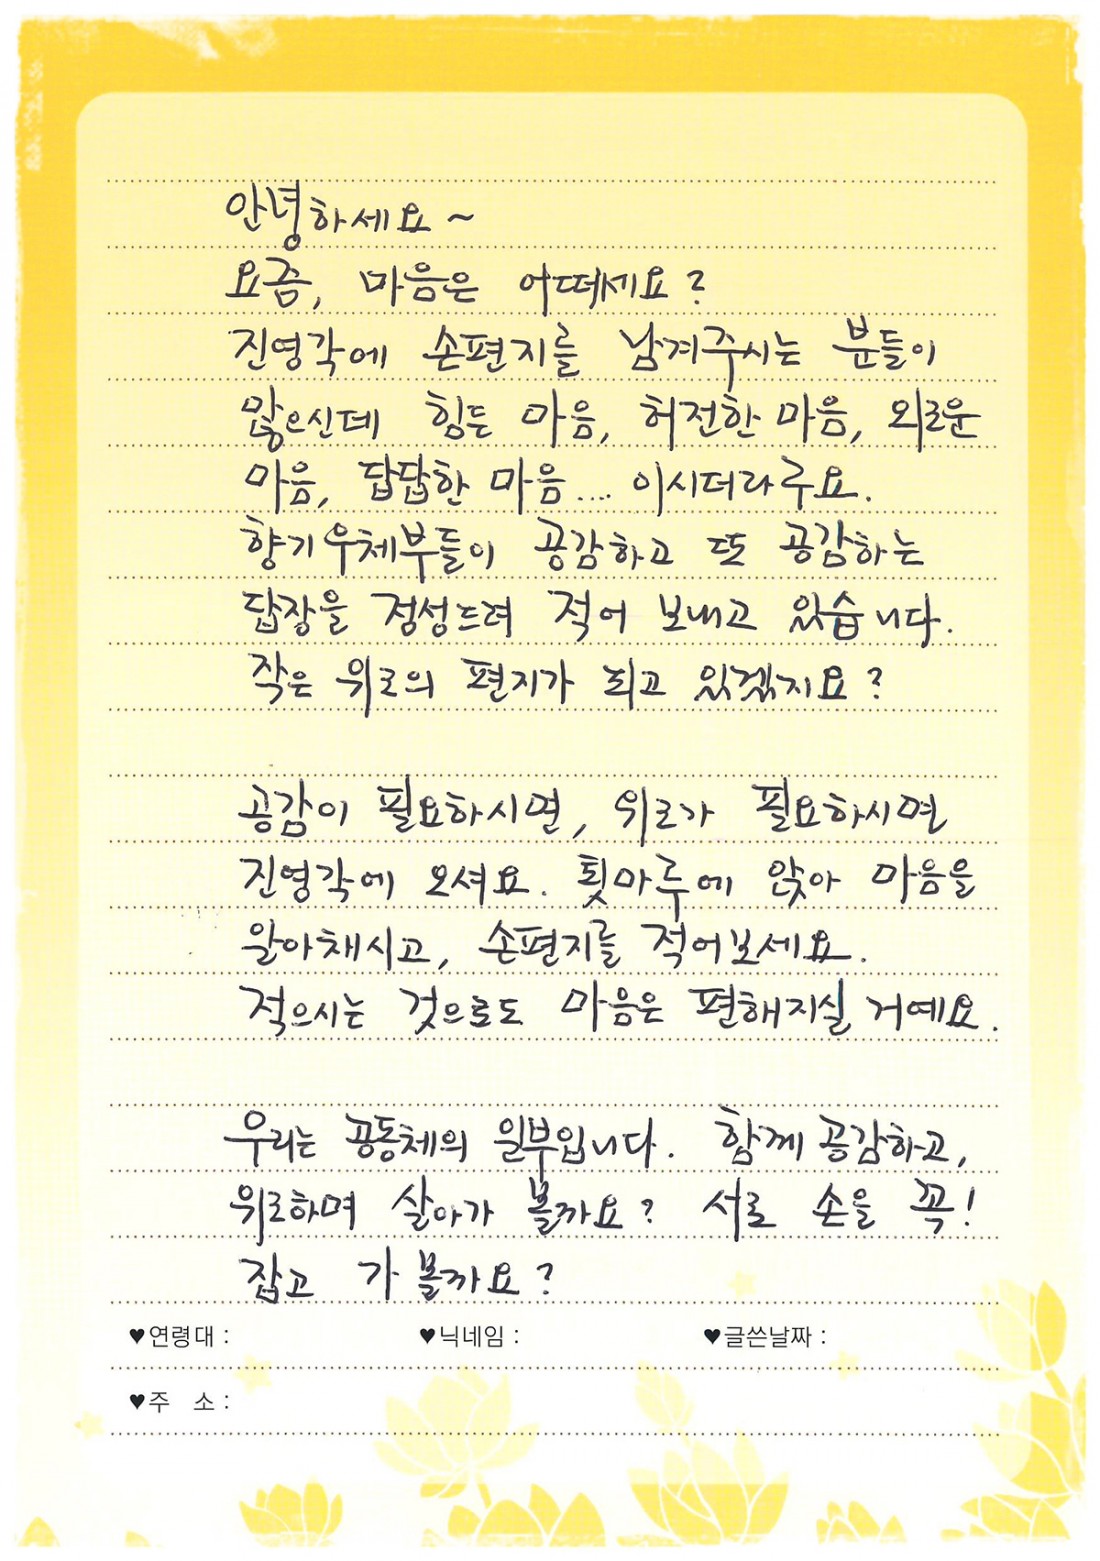 안녕하세요~
요즘, 마음은 어떠세요?
진영각에 손편지를 남겨주시는 분들이
많으신데 힘든 마음, 허전한 마음, 외로운
마음, 답답한 마음.... 이시더라구요.
향기우체부들이 공감하고 또 공감하는
답장을 정성드려 적어 보내고 있습니다.
작은 위로의 편지가 되고 있겠지요?
공감이 필요하시면, 위로가 필요하시면
진영각에 오셔요. 툇마루에 앉아 마음을
알아채시고, 손편지를 적어보세요.
적으시는 것으로도 마음은 편해지실 거예요.
우리는 공동체의 일부입니다. 함께 공감하고,
위로하며 살아가 볼까요? 서로 손을 꼭!
잡고 가 볼까요?
♥연령대 : ♥닉네임 : ♥글쓴날짜 :
♥주 소 :